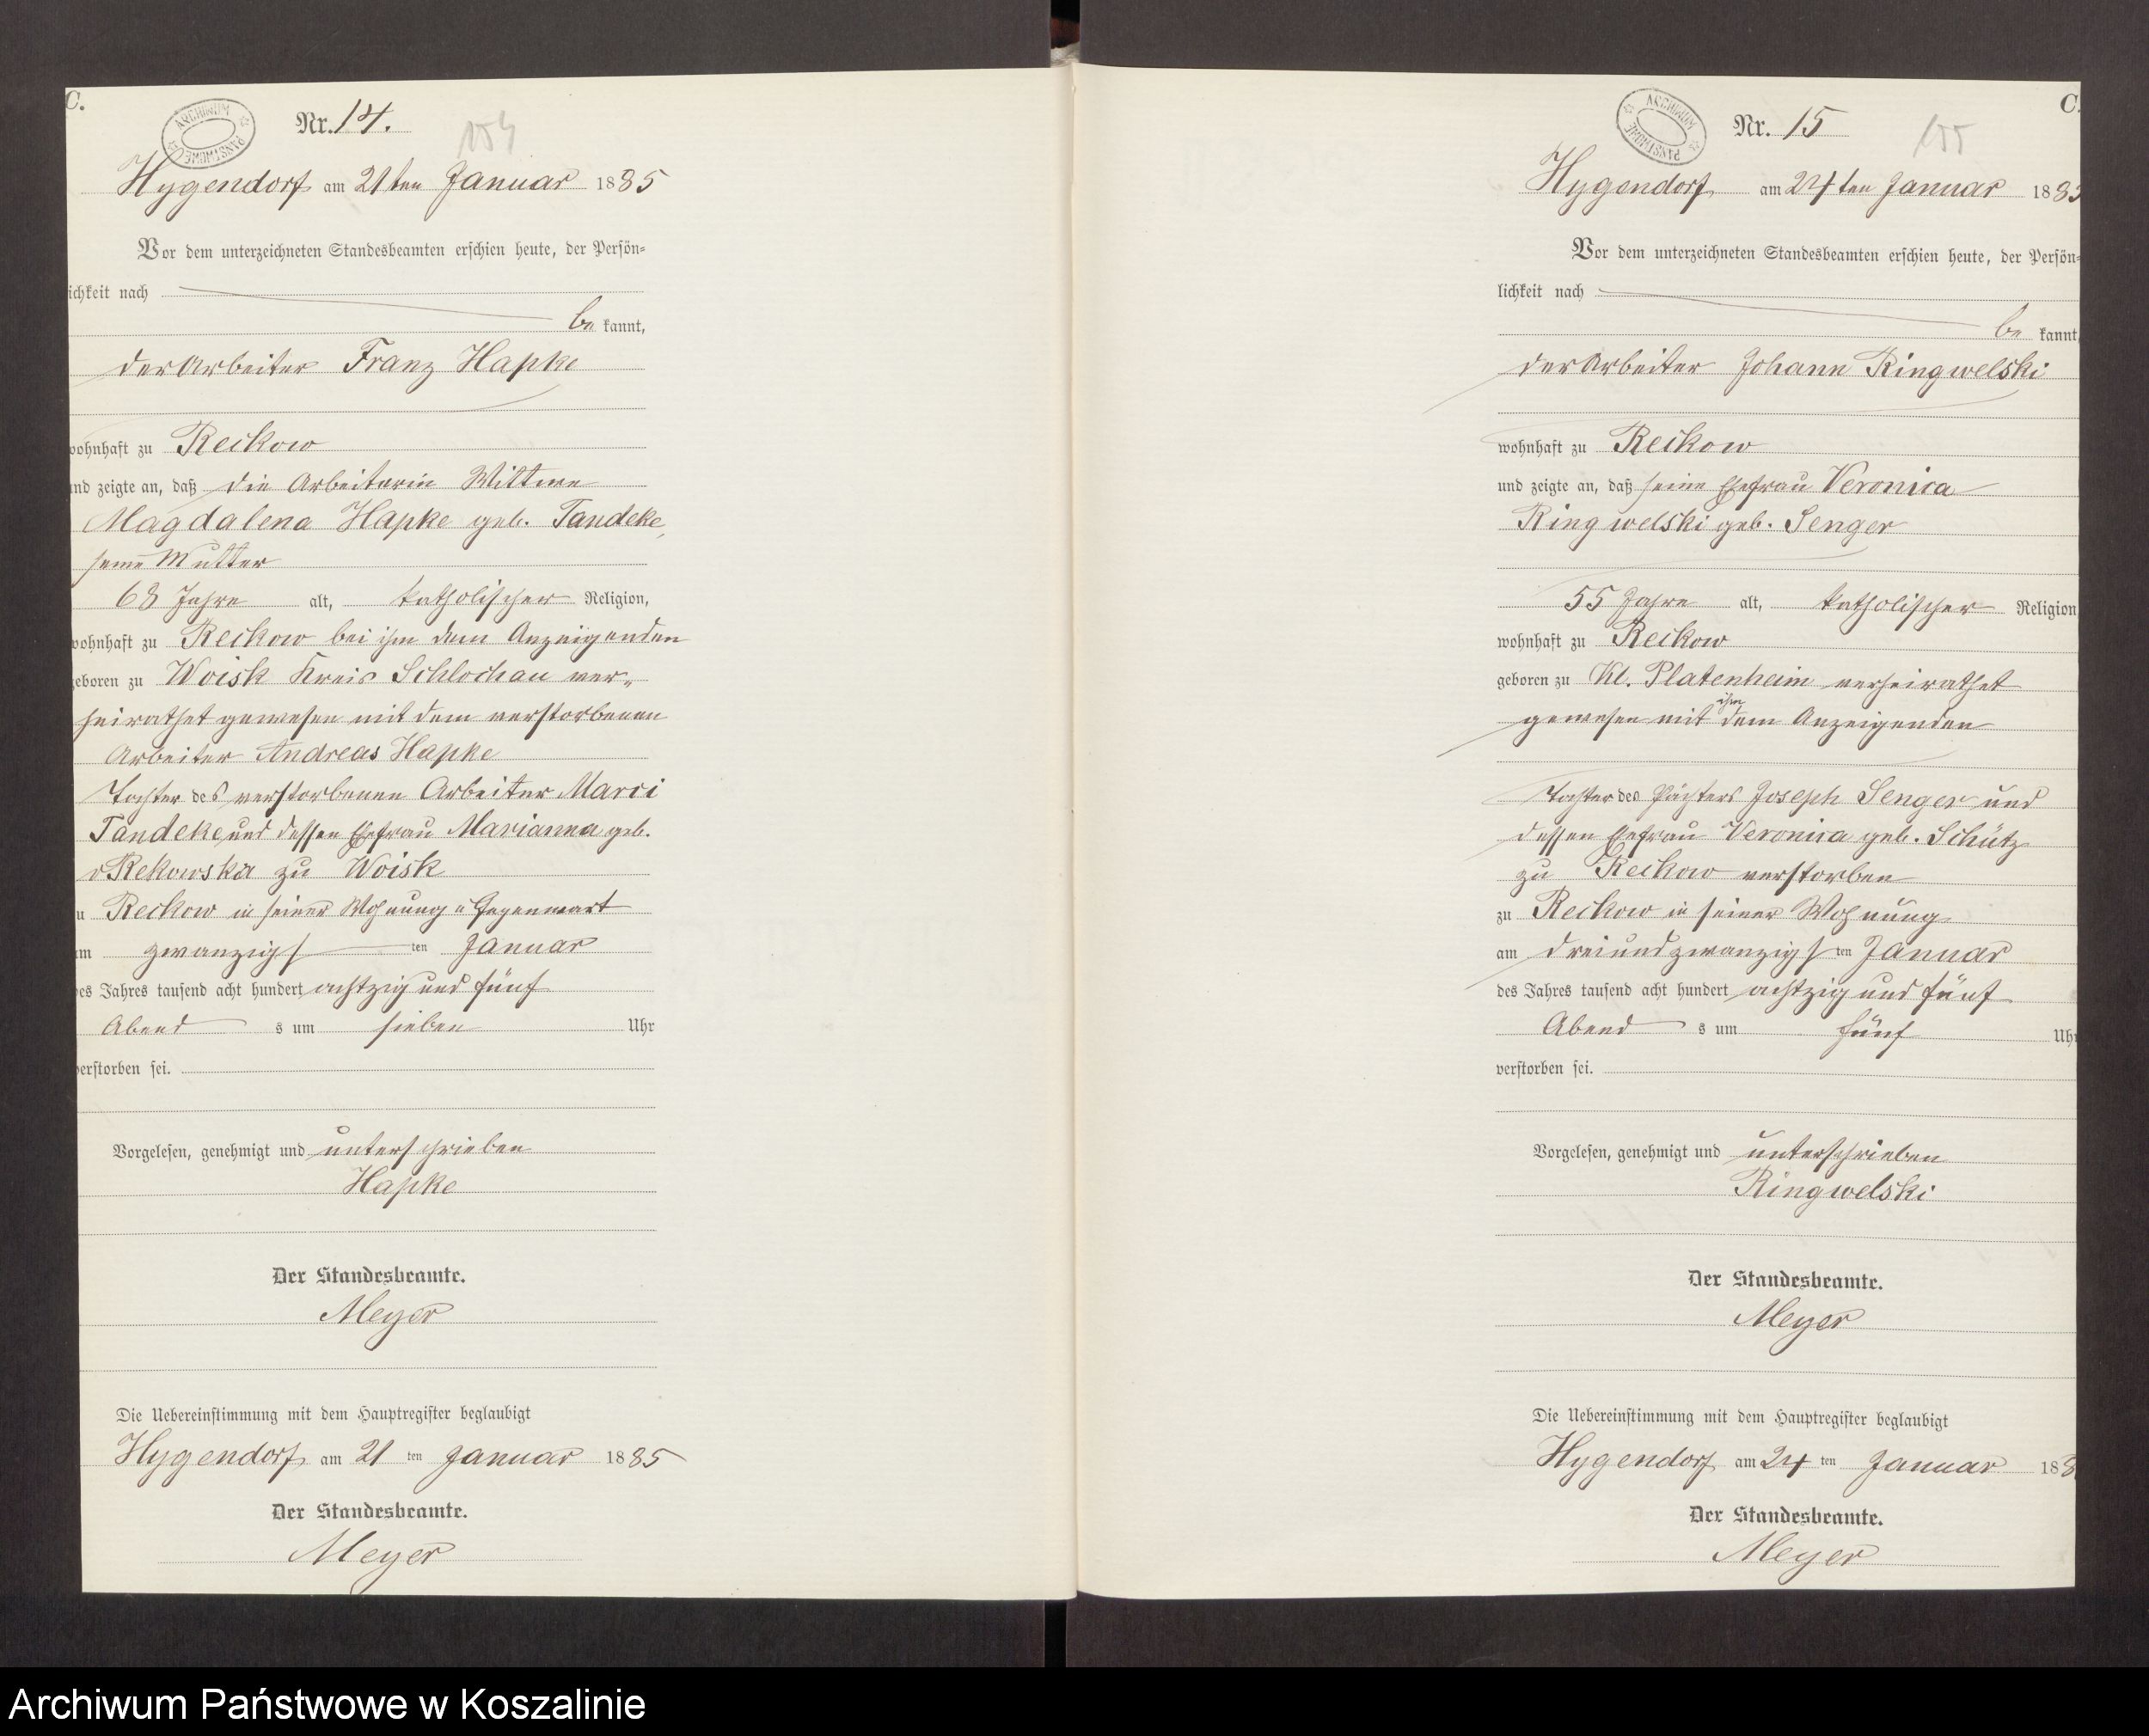 C.
ARCHIWUM PAŃSTWOWE
Nr. 14.
154
Hygendorf am 21ten Januar 1885
Vor dem unterzeichneten Standesbeamten erschien heute, der Persön=
lichkeit nach
be kannt,
der Arbeiter Franz Hapke
wohnhaft zu Reckow
und zeigte an, daß die Arbeiterin Wittwe
Magdalena Hapke geb. Tandeke,
seine Mutter
68 Jahre alt, katholischer Religion,
wohnhaft zu Reckow bei ihm dem Anzeigenden
geboren zu Woisk Kreis Schlochau ver„
heirathet gewesen mit dem verstorbenen
Arbeiter Andreas Hapke
Tochter des verstorbenen Arbeiter Marci
Tandeke und dessen Ehefrau Marianna geb.
v Rekowska zu Woisk
zu Reckow in seiner Wohnung u Gegenwart
am zwanzigsten Januar
des Jahres tausend acht hundert achtzig und fünf
Abend s um sieben Uhr
verstorben sei.
Vorgelesen, genehmigt und unterschrieben
Hapke
Der Standesbeamte.
Meyer
Die Uebereinstimmung mit dem Hauptregister beglaubigt
Hygendorf am 21 ten Januar 1885
Der Standesbeamte.
Meyer
C.
ARCHIWUM PAŃSTWOWE
Nr. 15
155
Hygendorf am 24ten Januar 1885
Vor dem unterzeichneten Standesbeamten erschien heute, der Persön=
lichkeit nach
be kannt,
der Arbeiter Johann Ringwelski
wohnhaft zu Reckow
und zeigte an, daß seine Ehefrau Veronica
Ringwelski geb. Senger
55 Jahre alt, katholischer Religion
wohnhaft zu Reckow
geboren zu Kl. Platenheim verheirathet
gewesen mit ihm dem Anzeigenden
Tochter des Pächters Joseph Senger und
dessen Ehefrau Veronica geb. Schütz
zu Reckow verstorben
zu Reckow in seiner Wohnung
am dreiundzwanzigsten Januar
des Jahres tausend acht hundert achtzig und fünf
Abend s um fünf Uhr
verstorben sei.
Vorgelesen, genehmigt und unterschrieben
Ringwelski
Der Standesbeamte.
Meyer
Die Uebereinstimmung mit dem Hauptregister beglaubigt
Hygendorf am 24 ten Januar 188
Der Standesbeamte.
Meyer
Archiwum Państwowe w Koszalinie